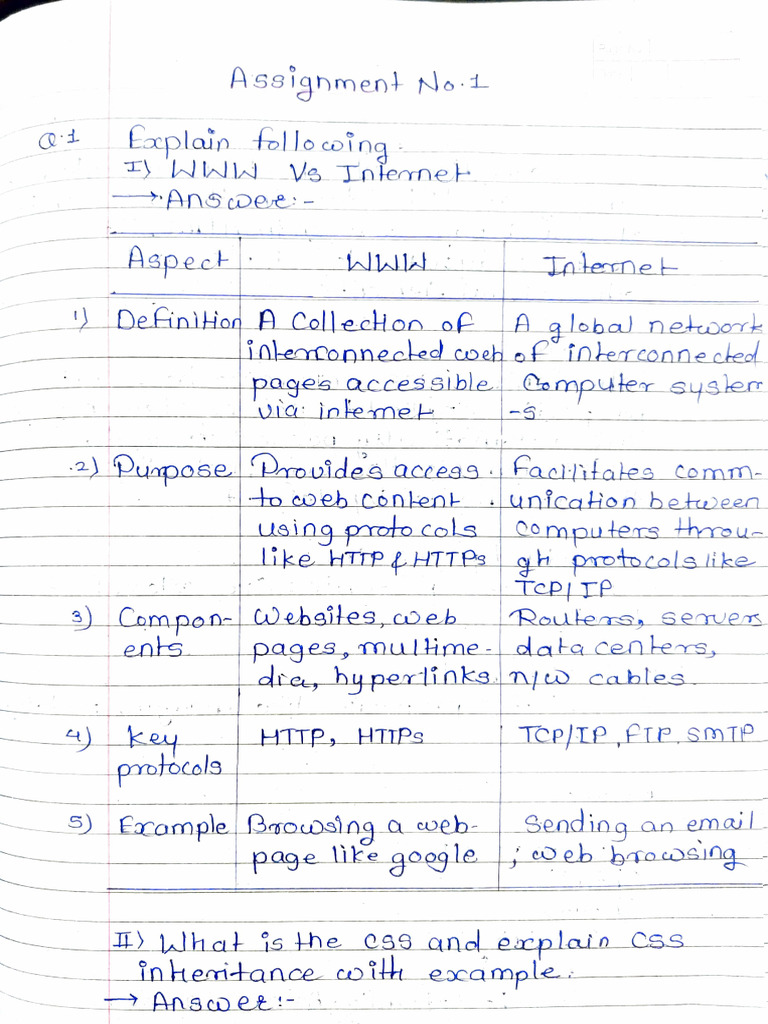 Assignment No.1
Q.1 Explain following.
I) WWW Vs Internet
→ Answer:-
Aspect WWW Internet
1) Definition A Collection of A global network
interconnected web of interconnected
pages accessible Computer system
via internet -s.
2) Purpose Provides access Facilitates comm-
to web content unication between
using protocols computers throu-
like HTTP & HTTPs gh protocols like
TCP/IP
3) Compon- Websites, web Routers, servers
ents pages, multime- data centers,
dia, hyperlinks. n/w cables.
4) Key HTTP, HTTPs TCP/IP, FTP, SMTP
protocols
5) Example Browsing a web- Sending an email
page like google ; web browsing
II) What is the CSS and explain CSS
inheritance with example.
→ Answer:-